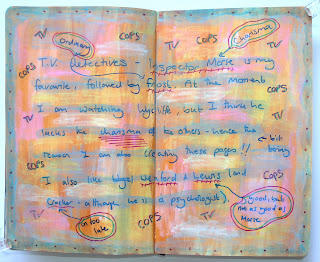 TV Ordinary COPS Charisma
TV COPS TV
T.V. detectives - Inspector Morse is my
COPS
favourite, followed by Frost. At the moment
I am watching Wycliffe, but I think he
lacks the charisma of the others - hence the
bit
reason I am also creating these pages!! boring
COPS
I also like Wexford & Lewis (and
COPS
Cracker - although he is a psychologist).
good, but
not as good as
Morse
TV on too late COPS TV